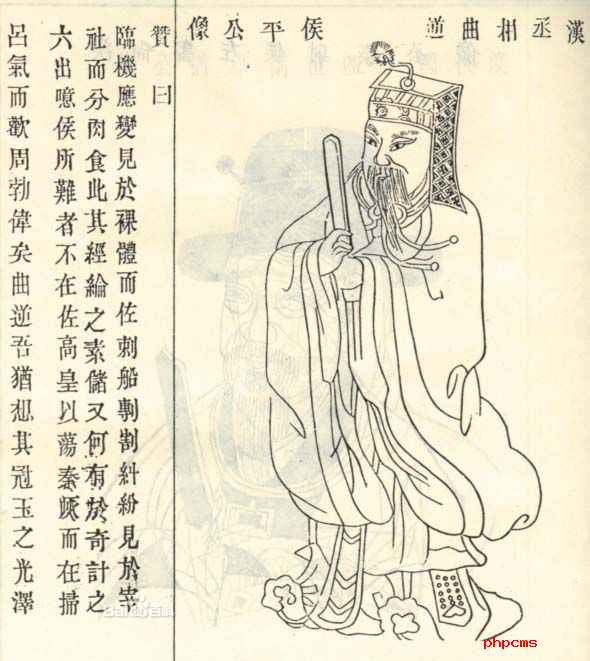 漢丞相曲逆侯平公像
贊曰
臨機應變見於裸體而佐刺船剸割糾紛見於宰
社而分肉食此其經綸之素儲又何有於奇計之
六出噫侯所難者不在佐高皇以蕩秦而在掃
呂氣而歡周勃偉矣曲逆吾猶想其冠玉之光澤
Bai百科
phpcms